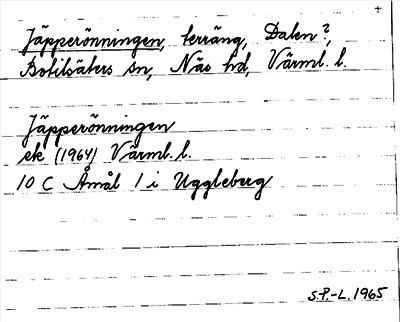 +
Jäpperönningen, terräng, Dalen?,
Botilsäters sn, Näs hd, Värml. l.
Jäpperönningen
ek (1964) Värml. l.
10 C Åmål 1 i Uggleberg
S.P.-L. 1965